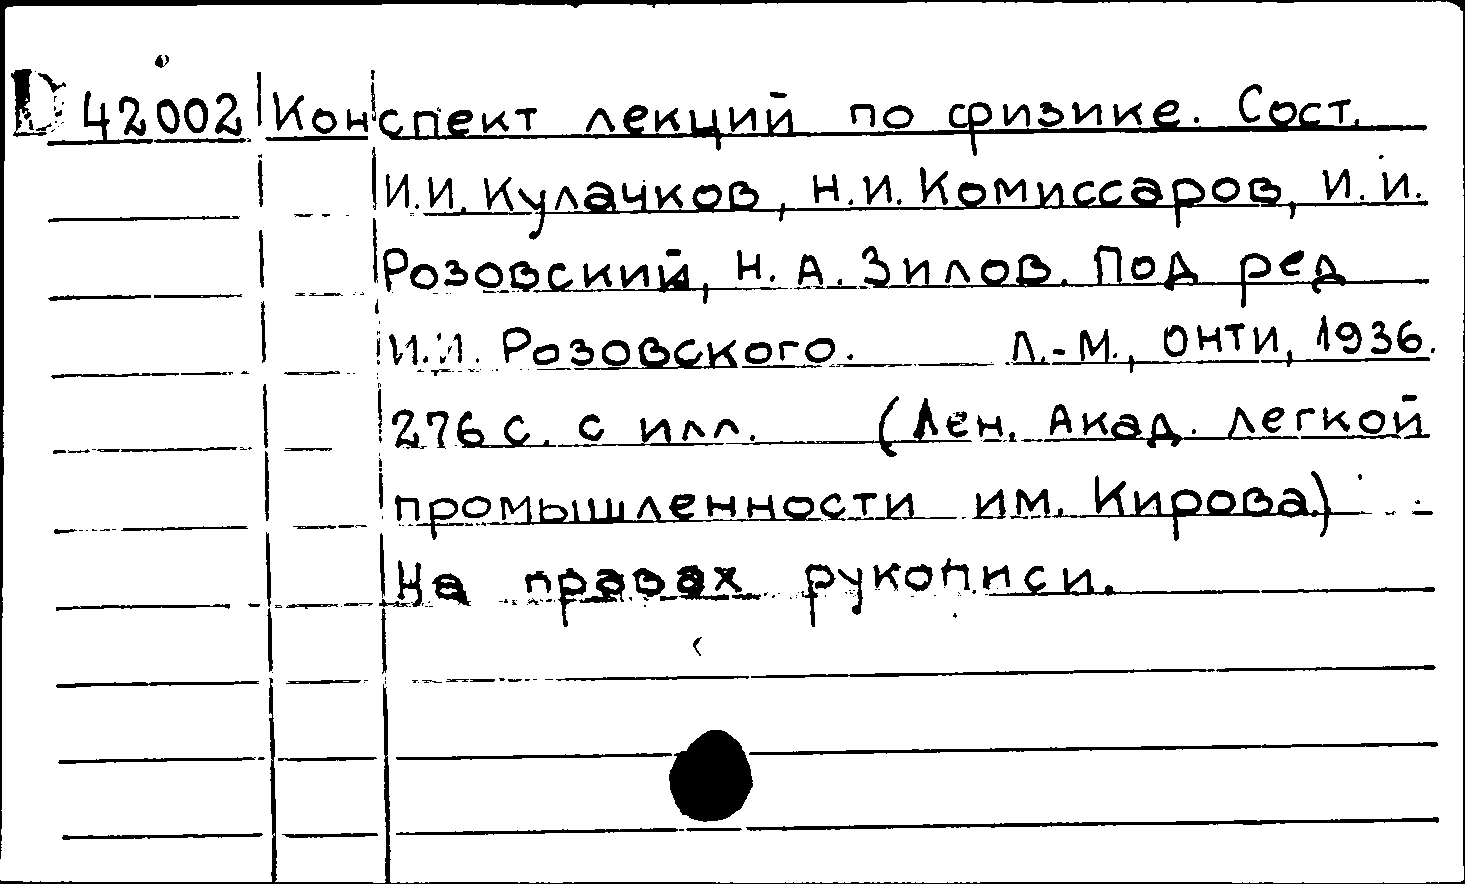 D 42002 Конспект лекций по физике. Сост.
И.И. Кулачков, Н.И. Комиссаров, И.И.
Розовский, Н.А. Зилов. Под ред
И.И. Розовского. Л.-М., ОНТИ, 1936.
276 с. с илл. (Лен. Акад. легкой
промышленности им. Кирова.)
На правах рукописи.